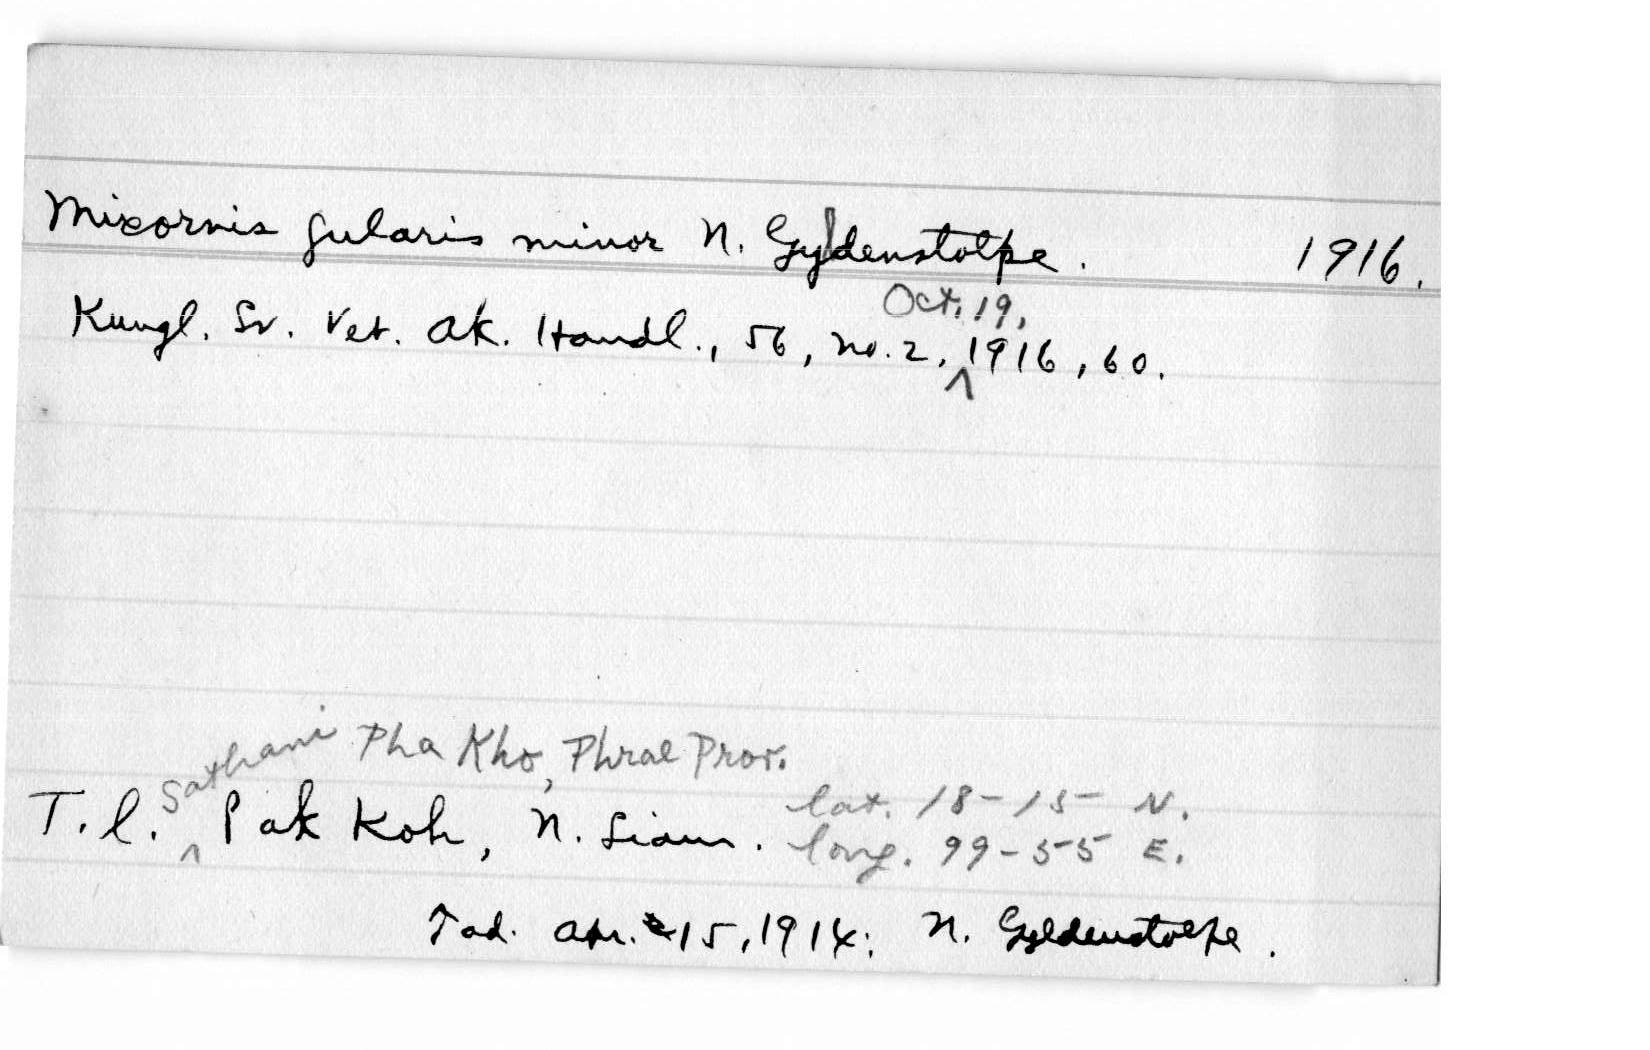 Mixornis gularis minor N. Gyldenstolpe. 1916.
Oct. 19,
Kungl. Sv. Vet. Ak. Handl., 56, no. 2, ^ 1916, 60.
Sathani Pha Kho, Phrae Prov.
T.l. ^ Pak Koh, N. Siam. lat. 18-15 N.
long. 99-55 E.
♂ad. Apr. 15, 1914; N. Gyldenstolpe.